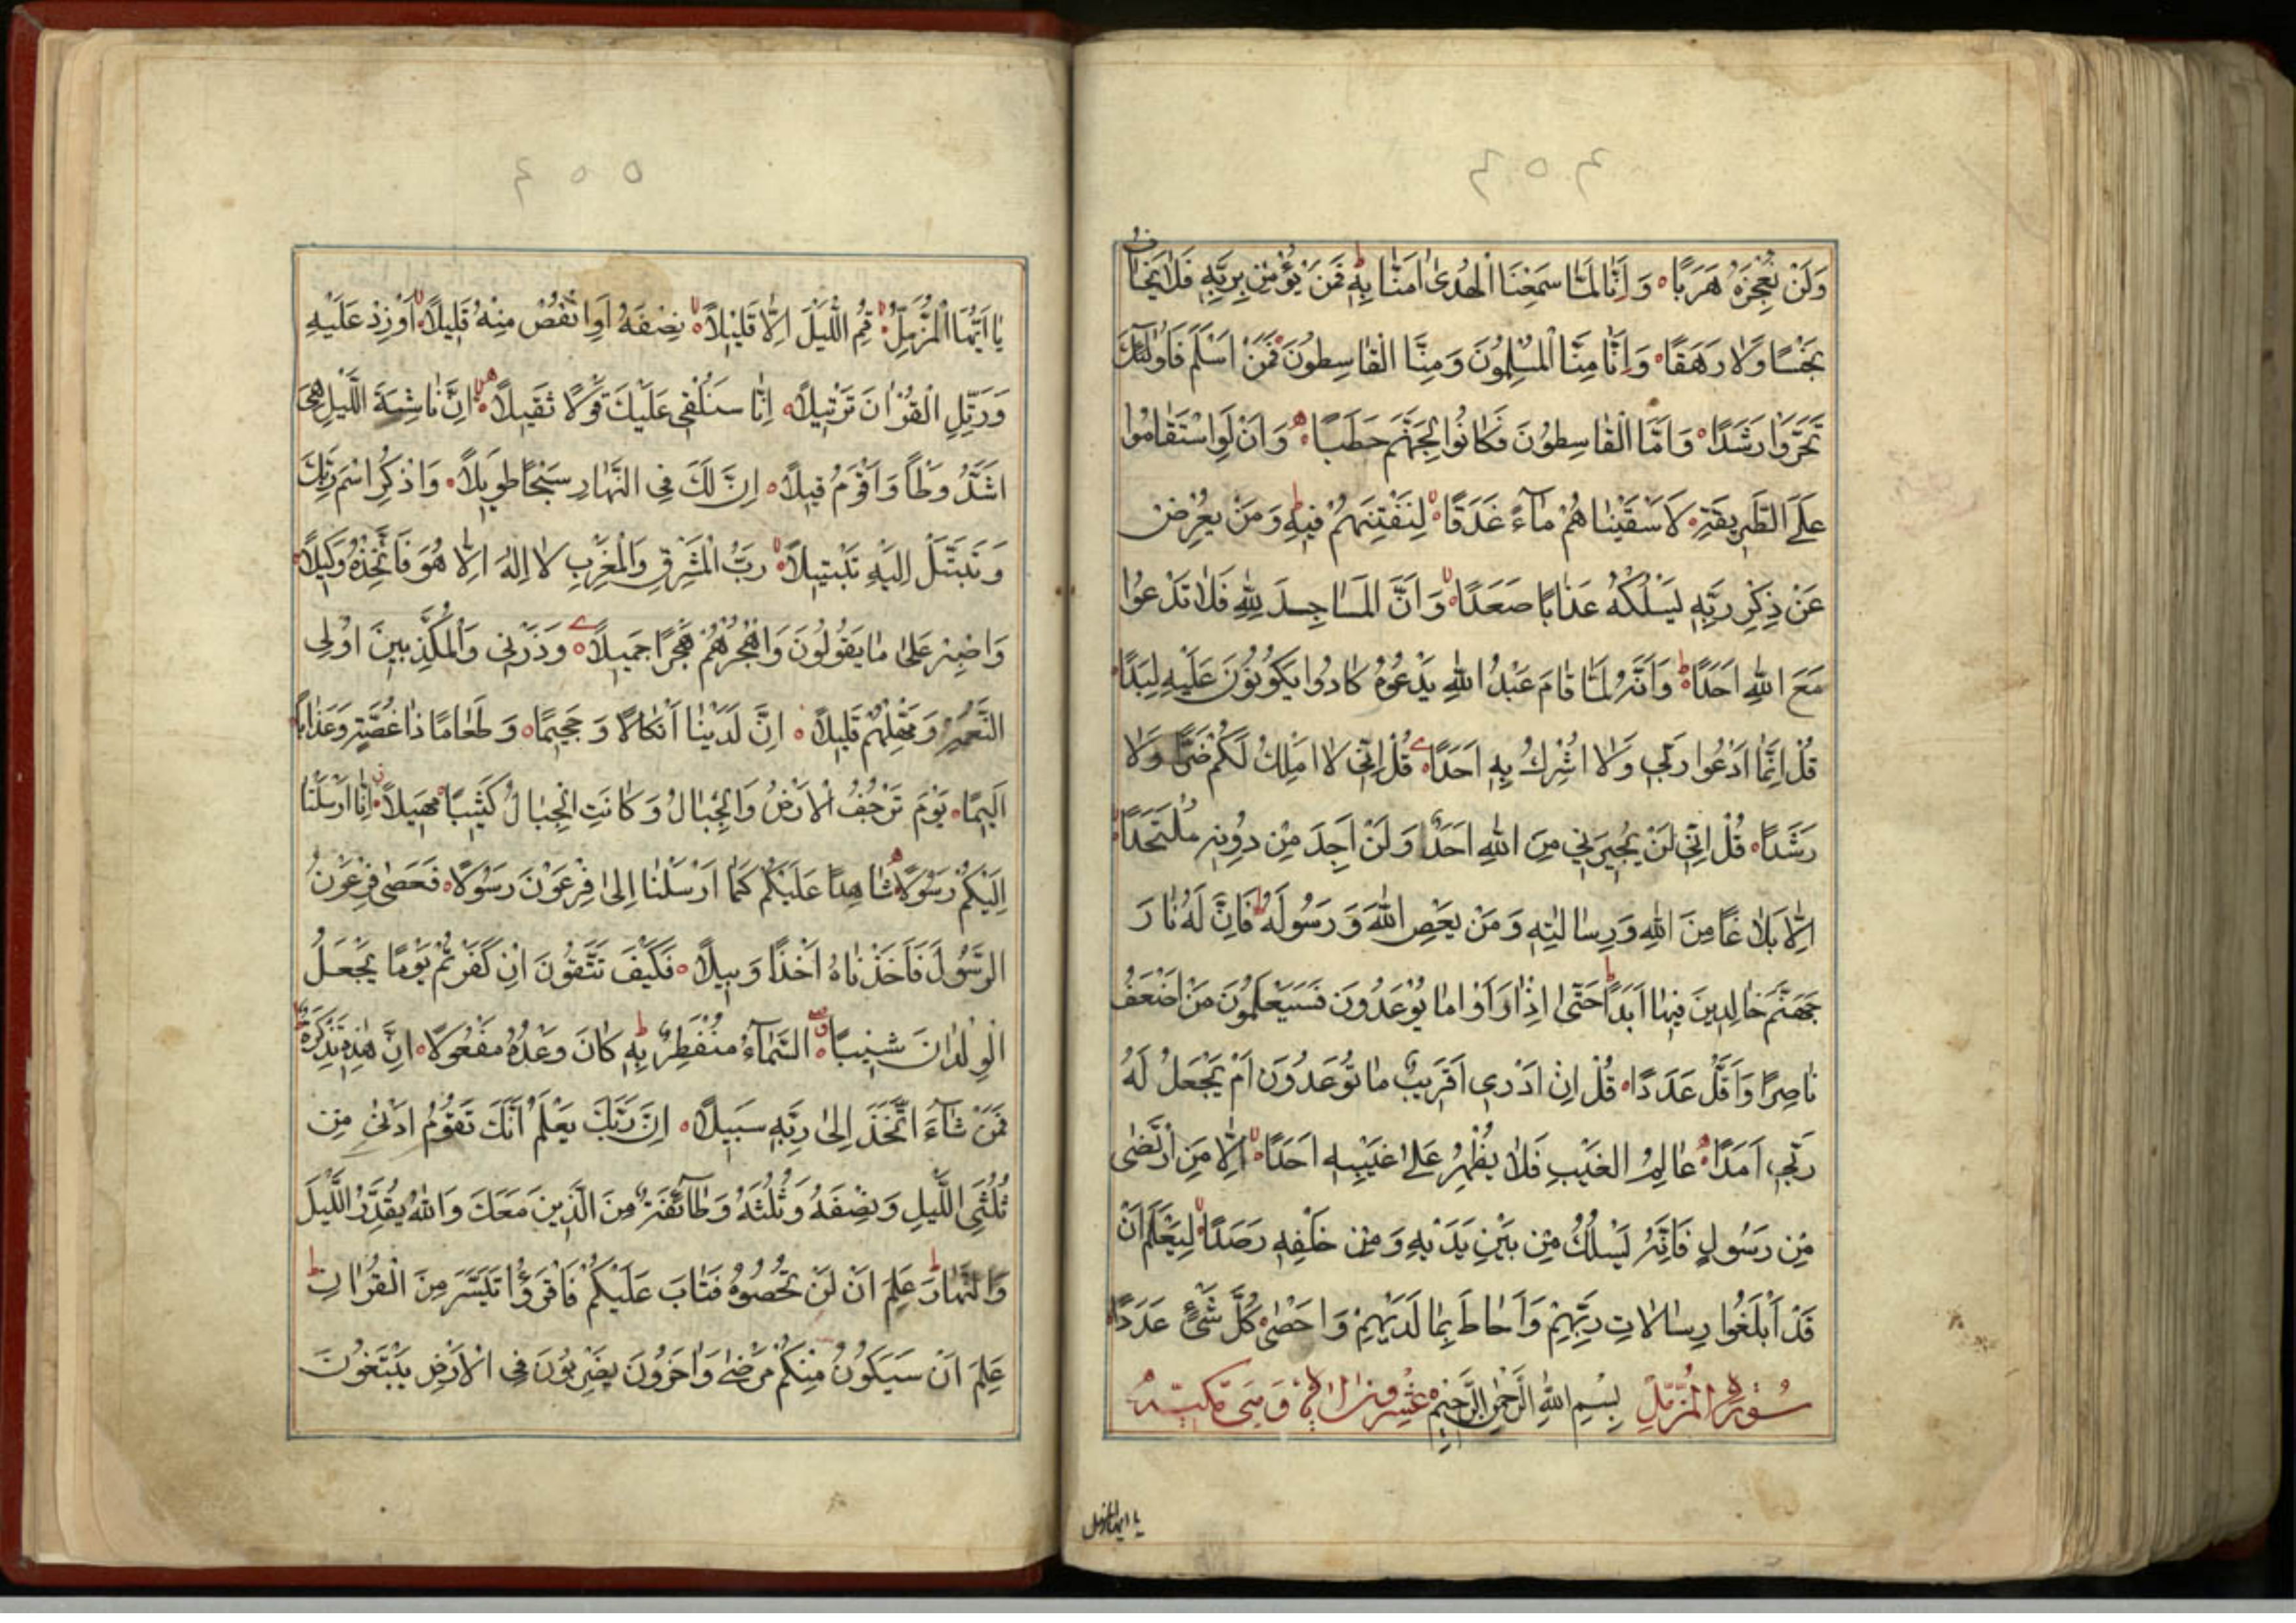 ٤٥٤
وَلَنْ نُعْجِزَهُ هَرَبًا وَاَنَّا لَمَّا سَمِعْنَا الْهُدىٰ اٰمَنَّا بِهٖ فَمَنْ يُؤْمِنْ بِرَبِّهٖ فَلَا يَخَافُ
بَخْسًا وَلَا رَهَقًا وَاَنَّا مِنَّا الْمُسْلِمُونَ وَمِنَّا الْقَاسِطُونَ فَمَنْ اَسْلَمَ فَاُولٰئِكَ
تَحَرَّوْا رَشَدًا وَاَمَّا الْقَاسِطُونَ فَكَانُوا لِجَهَنَّمَ حَطَبًا وَاَنْ لَوِ اسْتَقَامُوا
عَلَى الطَّرِيقَةِ لَاَسْقَيْنَاهُمْ مَآءً غَدَقًا لِنَفْتِنَهُمْ فِيهِ وَمَنْ يُعْرِضْ
عَنْ ذِكْرِ رَبِّهٖ يَسْلُكْهُ عَذَابًا صَعَدًا وَاَنَّ الْمَسَاجِدَ لِلّٰهِ فَلَا تَدْعُوا
مَعَ اللّٰهِ اَحَدًا وَاَنَّهُ لَمَّا قَامَ عَبْدُ اللّٰهِ يَدْعُوهُ كَادُوا يَكُونُونَ عَلَيْهِ لِبَدًا
قُلْ اِنَّمَا اَدْعُوا رَبّٖي وَلَا اُشْرِكُ بِهٖ اَحَدًا قُلْ اِنّٖي لَا اَمْلِكُ لَكُمْ ضَرًّا وَلَا
رَشَدًا قُلْ اِنّٖي لَنْ يُجِيرَنٖي مِنَ اللّٰهِ اَحَدٌ وَلَنْ اَجِدَ مِنْ دُونِهٖ مُلْتَحَدًا
اِلَّا بَلَاغًا مِنَ اللّٰهِ وَرِسَالَاتِهٖ وَمَنْ يَعْصِ اللّٰهَ وَرَسُولَهُ فَاِنَّ لَهُ نَارَ
جَهَنَّمَ خَالِدِينَ فِيهَا اَبَدًا حَتّٰى اِذَا رَاَوْا مَا يُوعَدُونَ فَسَيَعْلَمُونَ مَنْ اَضْعَفُ
نَاصِرًا وَاَقَلُّ عَدَدًا قُلْ اِنْ اَدْرٖي اَقَرِيبٌ مَا تُوعَدُونَ اَمْ يَجْعَلُ لَهُ
رَبّٖي اَمَدًا عَالِمُ الْغَيْبِ فَلَا يُظْهِرُ عَلىٰ غَيْبِهٖ اَحَدًا اِلَّا مَنِ ارْتَضٰى
مِنْ رَسُولٍ فَاِنَّهُ يَسْلُكُ مِنْ بَيْنِ يَدَيْهِ وَمِنْ خَلْفِهٖ رَصَدًا لِيَعْلَمَ اَنْ
قَدْ اَبْلَغُوا رِسَالَاتِ رَبِّهِمْ وَاَحَاطَ بِمَا لَدَيْهِمْ وَاَحْصٰى كُلَّ شَىْءٍ عَدَدًا
سُورَةُ الْمُزَّمِّلِ بِسْمِ اللّٰهِ الرَّحْمٰنِ الرَّحِيمِ عشرون وهى مكية
يا ايها المزمل
٤٥٥
يَا اَيُّهَا الْمُزَّمِّلُ قُمِ اللَّيْلَ اِلَّا قَلِيلًا نِصْفَهُ اَوِ انْقُصْ مِنْهُ قَلِيلًا اَوْ زِدْ عَلَيْهِ
وَرَتِّلِ الْقُرْاٰنَ تَرْتِيلًا اِنَّا سَنُلْقٖي عَلَيْكَ قَوْلًا ثَقِيلًا اِنَّ نَاشِئَةَ اللَّيْلِ هِيَ
اَشَدُّ وَطْأً وَاَقْوَمُ قِيلًا اِنَّ لَكَ فِي النَّهَارِ سَبْحًا طَوِيلًا وَاذْكُرِ اسْمَ رَبِّكَ
وَتَبَتَّلْ اِلَيْهِ تَبْتِيلًا رَبُّ الْمَشْرِقِ وَالْمَغْرِبِ لَا اِلٰهَ اِلَّا هُوَ فَاتَّخِذْهُ وَكِيلًا
وَاصْبِرْ عَلىٰ مَا يَقُولُونَ وَاهْجُرْهُمْ هَجْرًا جَمِيلًا وَذَرْنٖي وَالْمُكَذِّبِينَ اُولِي
النَّعْمَةِ وَمَهِّلْهُمْ قَلِيلًا اِنَّ لَدَيْنَا اَنْكَالًا وَجَحِيمًا وَطَعَامًا ذَا غُصَّةٍ وَعَذَابًا
اَلِيمًا يَوْمَ تَرْجُفُ الْاَرْضُ وَالْجِبَالُ وَكَانَتِ الْجِبَالُ كَثِيبًا مَهِيلًا اِنَّا اَرْسَلْنَا
اِلَيْكُمْ رَسُولًا شَاهِدًا عَلَيْكُمْ كَمَا اَرْسَلْنَا اِلىٰ فِرْعَوْنَ رَسُولًا فَعَصٰى فِرْعَوْنُ
الرَّسُولَ فَاَخَذْنَاهُ اَخْذًا وَبِيلًا فَكَيْفَ تَتَّقُونَ اِنْ كَفَرْتُمْ يَوْمًا يَجْعَلُ
الْوِلْدَانَ شِيبًا السَّمَآءُ مُنْفَطِرٌ بِهٖ كَانَ وَعْدُهُ مَفْعُولًا اِنَّ هٰذِهٖ تَذْكِرَةٌ
فَمَنْ شَآءَ اتَّخَذَ اِلىٰ رَبِّهٖ سَبِيلًا اِنَّ رَبَّكَ يَعْلَمُ اَنَّكَ تَقُومُ اَدْنىٰ مِنْ
ثُلُثَيِ اللَّيْلِ وَنِصْفَهُ وَثُلُثَهُ وَطَآئِفَةٌ مِنَ الَّذِينَ مَعَكَ وَاللّٰهُ يُقَدِّرُ اللَّيْلَ
وَالنَّهَارَ عَلِمَ اَنْ لَنْ تُحْصُوهُ فَتَابَ عَلَيْكُمْ فَاقْرَؤُا مَا تَيَسَّرَ مِنَ الْقُرْاٰنِ
عَلِمَ اَنْ سَيَكُونُ مِنْكُمْ مَرْضٰى وَاٰخَرُونَ يَضْرِبُونَ فِي الْاَرْضِ يَبْتَغُونَ